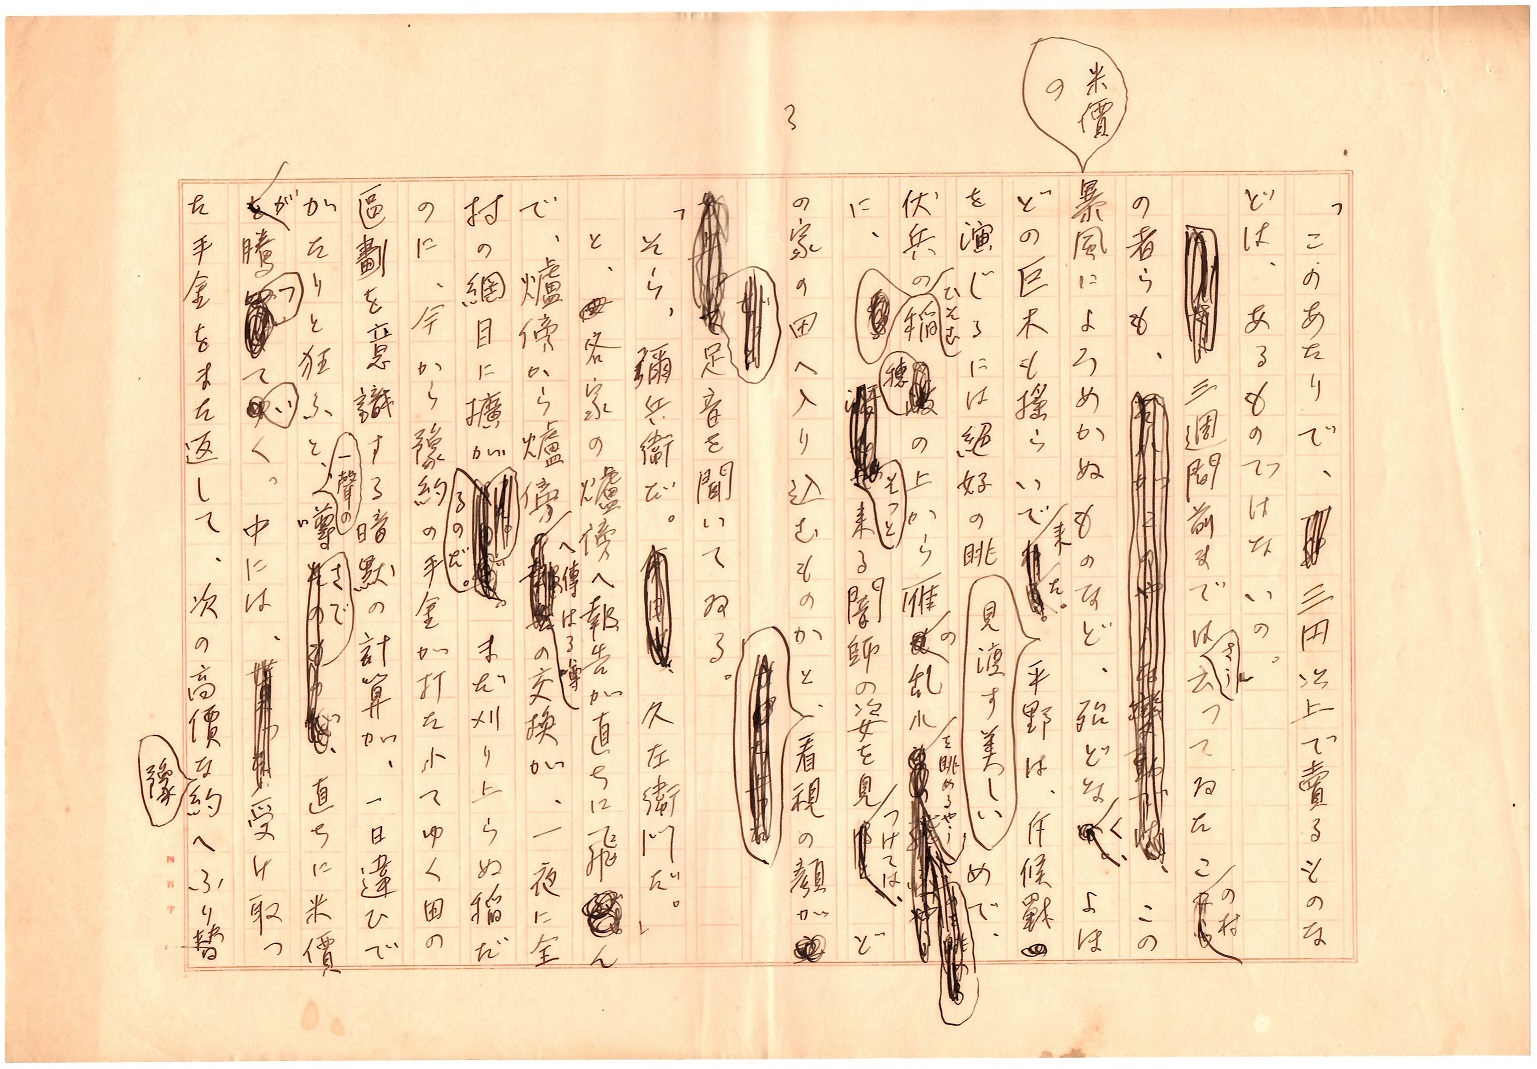 3
「このあたりで、三円以上で賣るものな
どは、あるものではないの。
三週間前まではさう云つてゐたこの村
の者らも、この
米價の
暴風によろめかぬものなど、殆どなく、よほ
どの巨木も搖らいで来た。平野は、斥候戰
を演じるには絕好の見渡す美しい眺めで、
伏兵のひそむ稲穂の上から雁の乱れを眺めるやうに、そつと来る闇師の姿を見つけては、ど
の家の田へ入り込むものかと、看視の顔が
足音を聞いてゐる。
「そら、彌兵衛だ。久左衛門だ。」
と、各家の爐傍へ報告が直ちに飛ん
で、爐傍から爐傍へ傳はる噂の交換が、一夜に全
村の網目に擴がるのだ。まだ刈り上らぬ稲だ
のに、今から豫約の手金が打たれてゆく田の
區劃を意識する暗默の計算が、一日違ひで
がたりと狂ふと、一聲の噂さで、直ちに米價
が騰つていく。中には、受け取つ
た手金をまた返して、次の高價な豫約へふり替
四百字